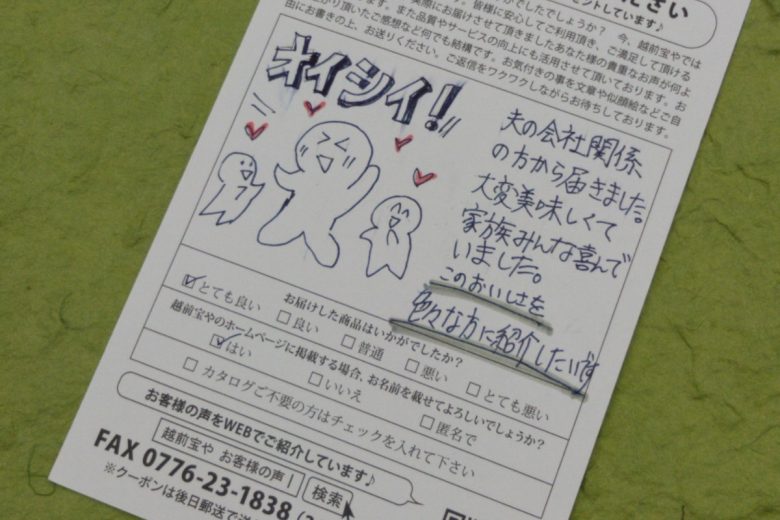 ださい
ゼントしています♪
でしたでしょうか? 今、越前宝やでは
皆様に安心してご利用頂き、ご満足して頂ける
実際にお届けさせて頂きましたあなた様の貴重なお声が何よ
ます。また品質やサービスの向上にも活用させて頂いております。お
がり頂いたご感想など何でも結構です。お気付きの事を文章や似顔絵などご自
由にお書きの上、お送りください。ご返信をワクワクしながらお待ちしております。
オイシイ!!
夫の会社関係
の方から届きました。
大変美味しくて
家族みんな喜んで
いました。
このおいしさを
色々な方に紹介したいです
お届けした商品はいかがでしたか?
☑とても良い □良い □普通 □悪い □とても悪い
越前宝やのホームページに掲載する場合、お名前を載せてよろしいでしょうか?
☑はい □いいえ □匿名で
□カタログご不要の方はチェックを入れて下さい
お客様の声をWEBでご紹介しています♪
越前宝や お客様の声 検索
FAX 0776-23-1838
※クーポンは後日郵送で送